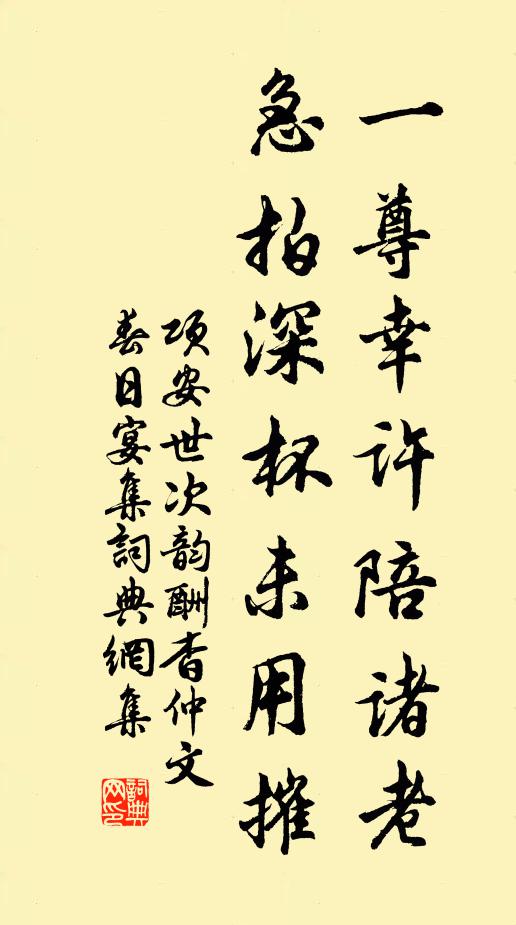 一尊幸許陪諸老
急拍深杯未用摧
項安世次韵酬杳仲文
春日宴集詞典網集
詞典
网印